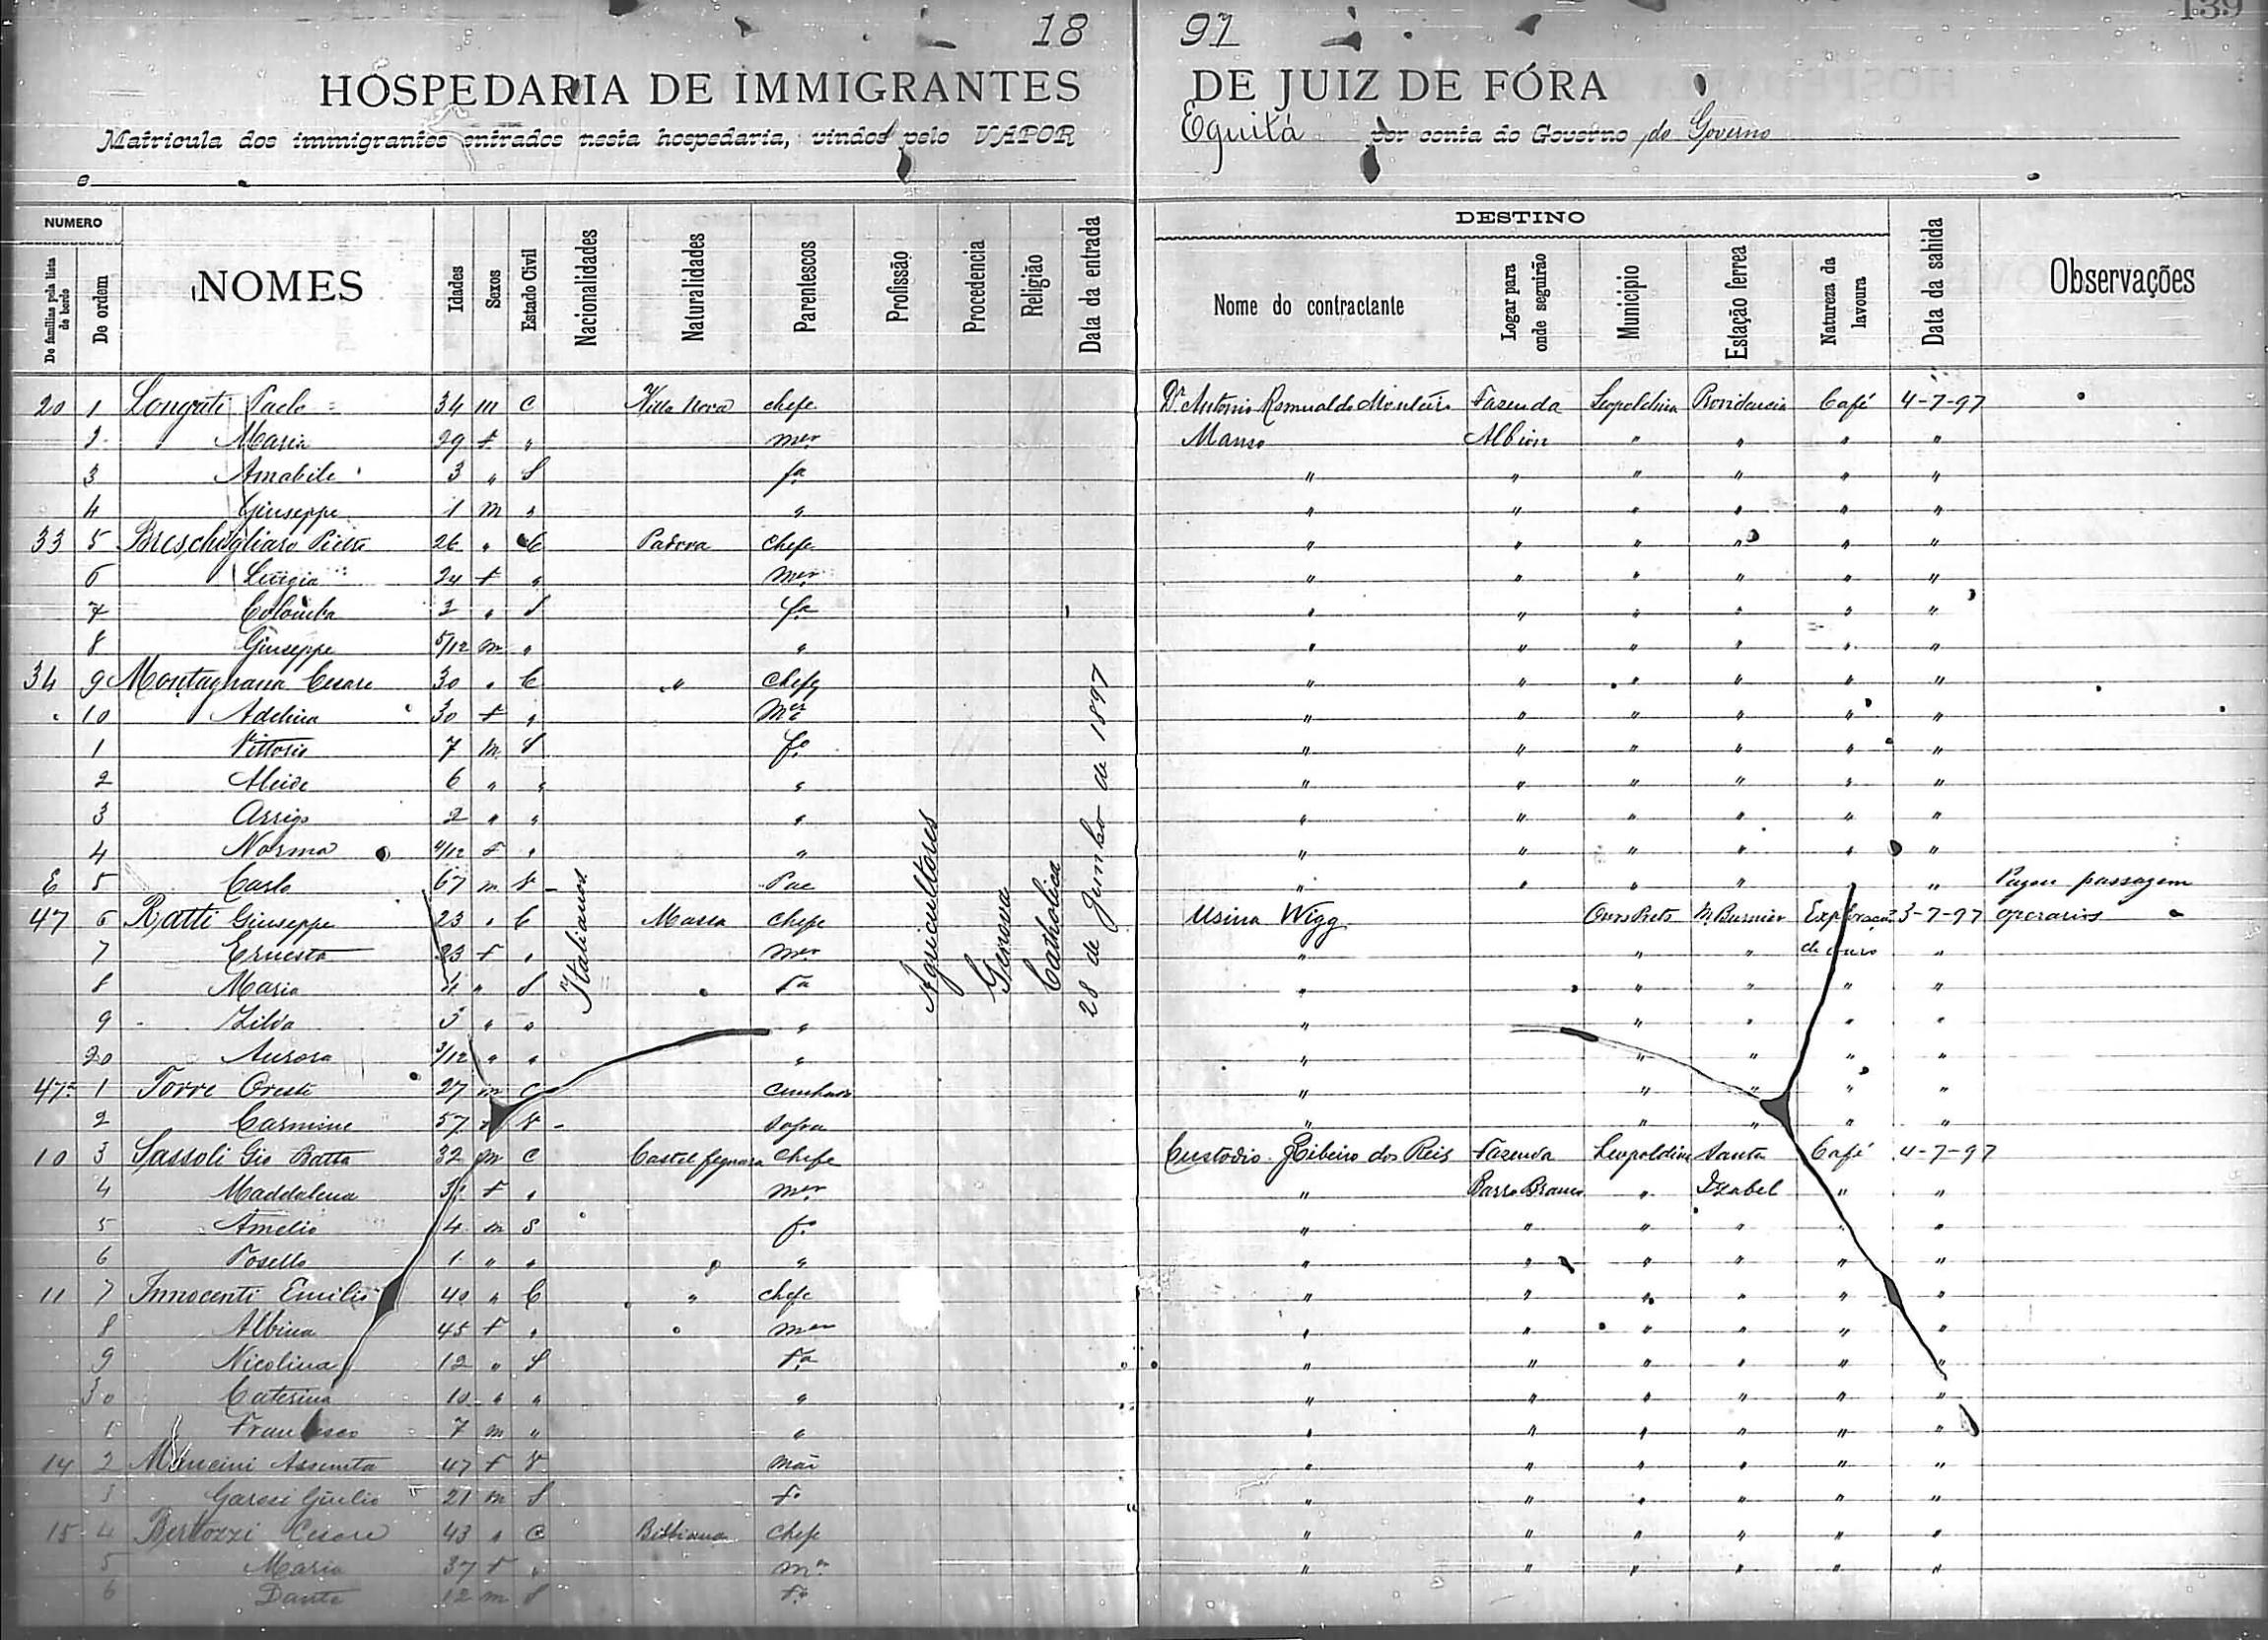 139
18 97
HOSPEDARIA DE IMMIGRANTES DE JUIZ DE FÓRA
Matricula dos immigrantes entrados nesta hospedaria, vindos pelo VAPOR Equitá por conta do Governo do Governo
NUMERO DESTINO
De familias pela lista de bordo De ordem NOMES Idades Sexos Estado Civil Nacionalidades Naturalidades Parentescos Profissão Procedencia Religião Data da entrada Nome do contractante Logar para onde seguirão Municipio Estação ferrea Natureza da lavoura Data da sahida Observações
Italianos Agricultores Genova Catholica 28 de Junho de 1897
20 1 Longati Paolo 34 m C Villa Nova chefe Dr. Antonio Romualdo Monteiro Fazenda Leopoldina Providencia Café 4-7-97
2 Maria 29 f " mer Manso Albion " " " "
3 Amabile 3 " S fa " " " " " "
4 Giuseppe 1 m " " " " " " " "
33 5 Breschigliaro Pietro 26 " C Padova chefe " " " " " "
6 Luigia 24 f " mer " " " " " "
7 Colomba 2 " S fa " " " " " "
8 Giuseppe 5/12 m " " " " " " " "
34 9 Montagnana Cesare 30 " C " chefe " " " " " "
10 Adelina 30 f " mer " " " " " "
1 Vittorio 7 m S fo " " " " " "
2 Alcide 6 " " " " " " " " "
3 Arrigo 2 " " " " " " " " "
4 Norma 4/12 f " " " " " " " "
E 5 Carlo 67 m V Pae " " " " " " Pagou passagem
47 6 Ratti Giuseppe 23 " C Massa chefe Usina Wigg Ouro Preto M. Burnier Exploração 3-7-97 operarios
7 Ernesta 23 f " mer " " " de ouro "
8 Maria 4 " S fa " " " " "
9 Zilda 3 " " " " " " " "
20 Aurora 3/12 " " " " " " " "
47a 1 Torre Oreste 27 m C cunhado " " " " "
2 Carmine 57 " V sogra " " " " "
10 3 Sassoli Gio Batta 32 m C chefe Custodio Ribeiro dos Reis Fazenda Leopoldina Santa Café 4-7-97
4 Maddalena f " mer " Barro Branco " Izabel " "
5 Amelio 4 m S fo " " " " " "
6 1 " " " " " " " " "
11 7 Innocenti Emilio 40 " C " chefe " " " " " "
8 Albina 45 f " mer " " " " " "
9 Nicolina 12 " S fa " " " " " "
30 Caterina 10 " " " " " " " " "
1 Francesco 7 m " " " " " " " "
14 2 Mancini Assunta 47 f V mãi " " " " " "
3 Giulio 21 m S fo " " " " " "
15 4 Bertozzi Cesare 43 " C Bibbiana chefe " " " " " "
5 Maria 37 f " mer " " " " " "
6 Dante 12 m S fo